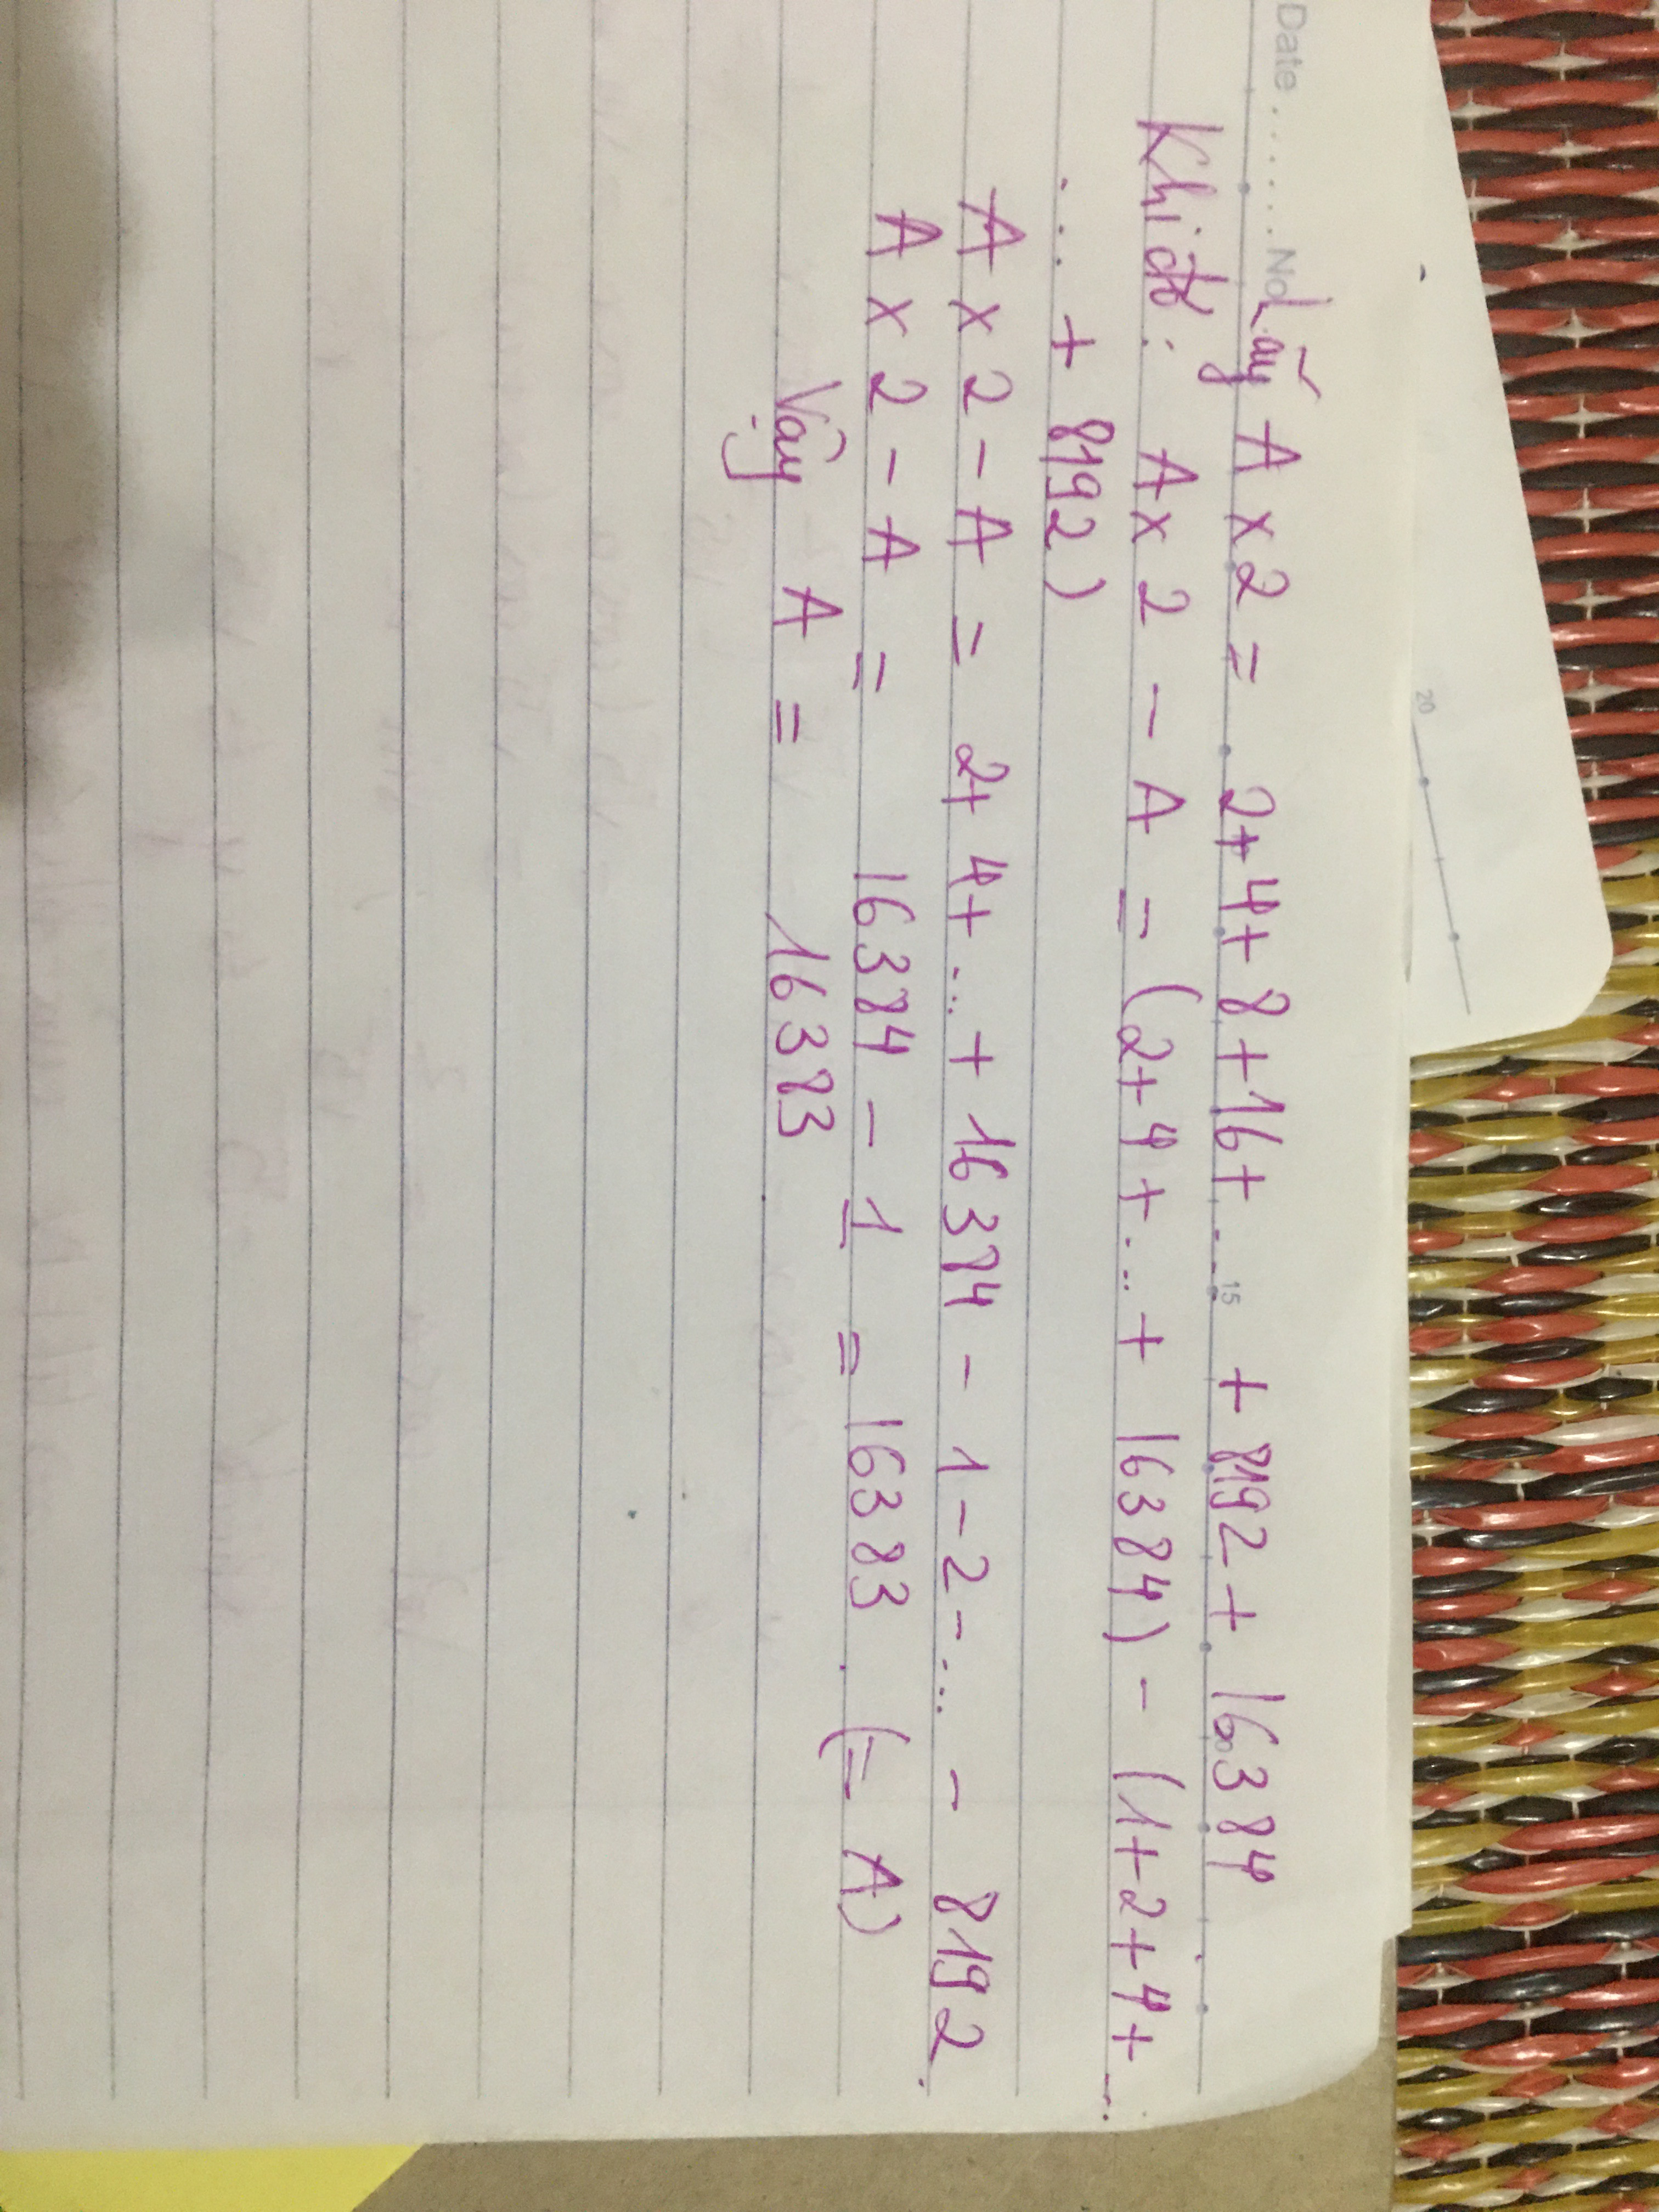 Date ....... No
20
15
Lấy A x 2 = 2+4+8+16+.... + 8192 + 16384
Khi đó: A x 2 - A = (2+4+...+ 16384) - (1+2+4+...
...+ 8192)
A x 2 - A = 2+4+...+ 16384 - 1-2-... - 8192.
A x 2 - A = 16384 - 1 = 16383 (= A)
Vậy A = 16383